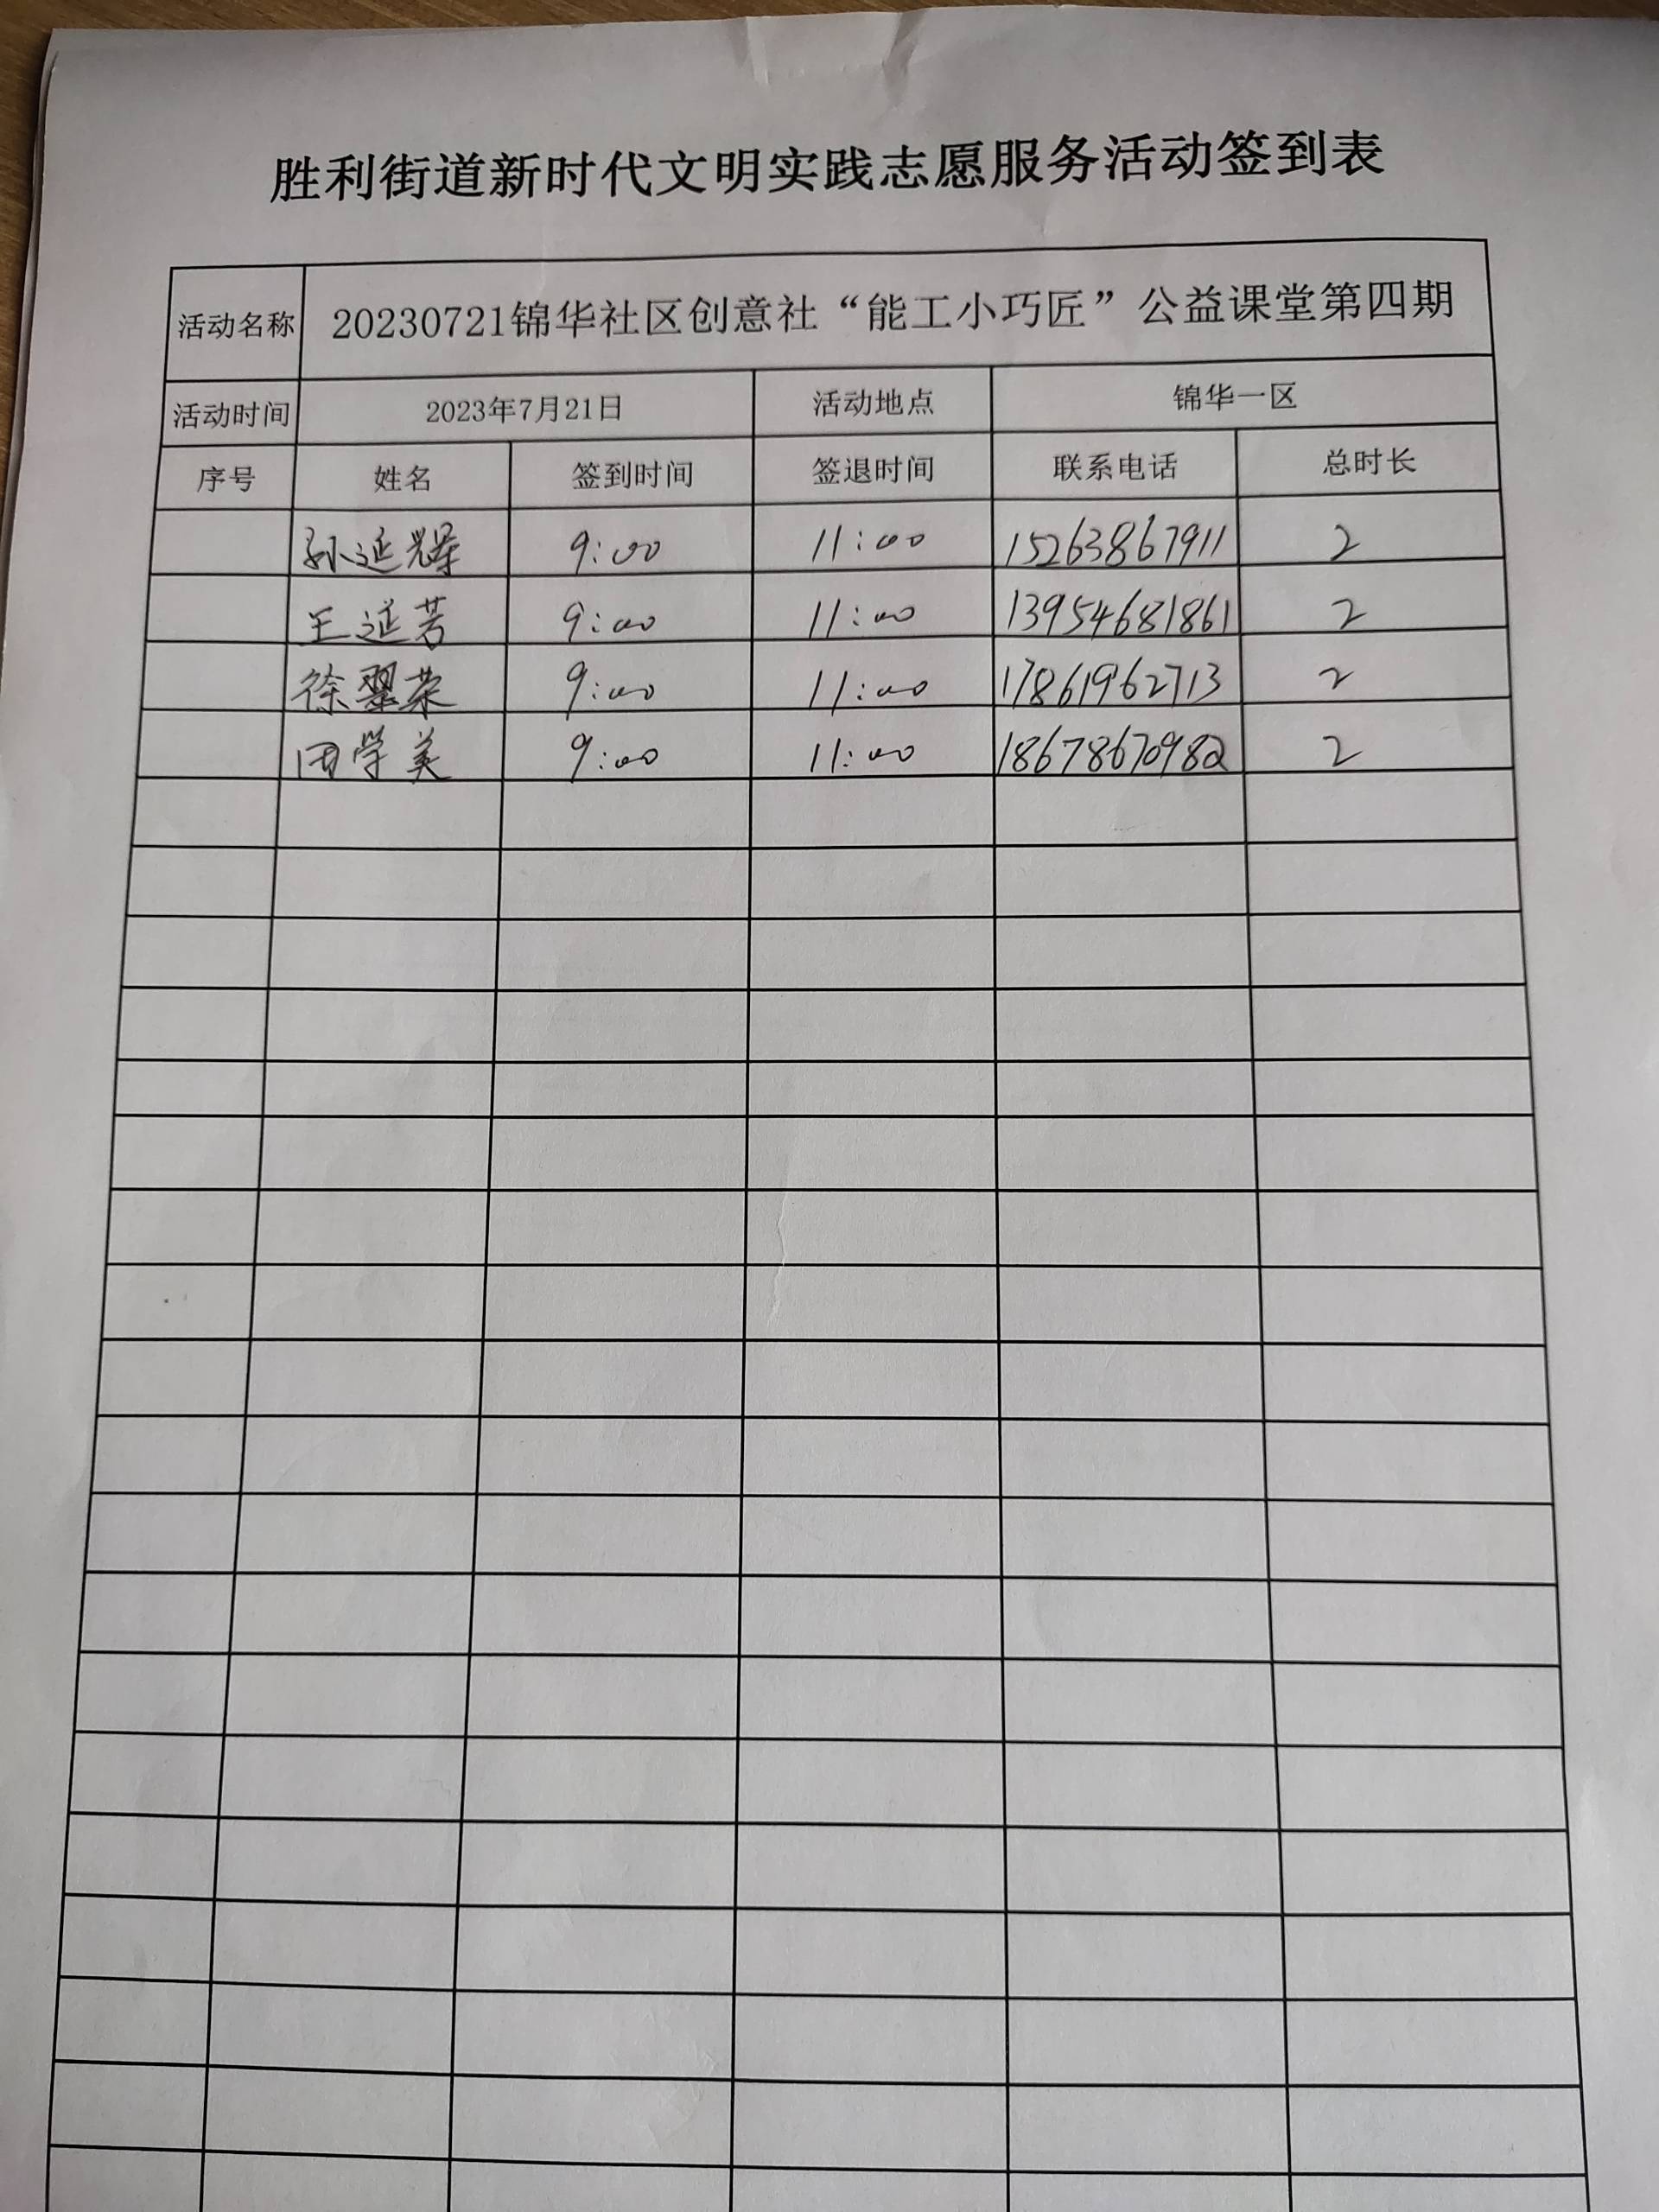 胜利街道新时代文明实践志愿服务活动签到表
活动名称 20230721锦华社区创意社“能工小巧匠”公益课堂第四期
活动时间 2023年7月21日 活动地点 锦华一区
序号 姓名 签到时间 签退时间 联系电话 总时长
孙延辉 9:00 11:00 15263867911 2
王延芳 9:00 11:00 13954681861 2
徐翠荣 9:00 11:00 17861962713 2
田学美 9:00 11:00 18678670982 2